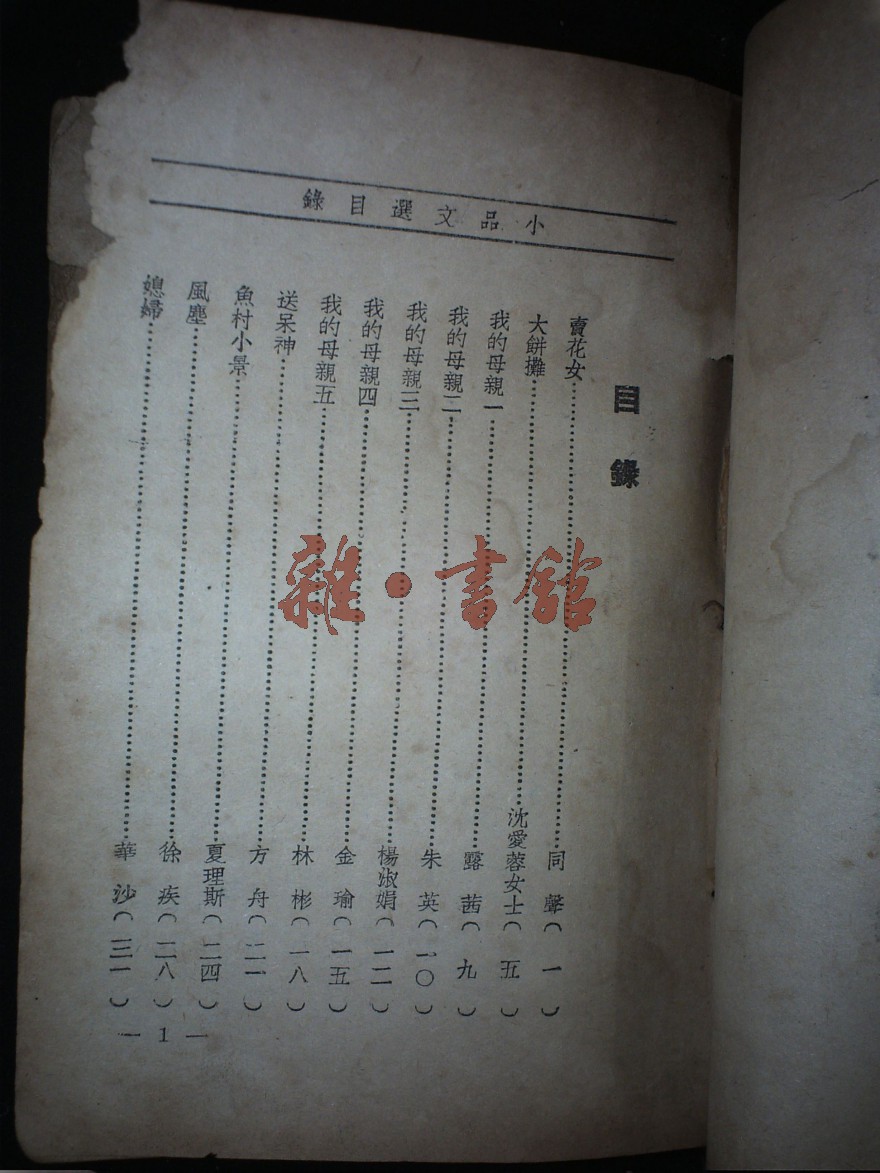 小品文選目錄
目錄
賣花女……同聲(一)
大餅攤……沈愛蓉女士(五)
我的母親一……露茜(九)
我的母親二……朱英(一〇)
我的母親三……楊淑娟(一二)
我的母親四……金瑜(一五)
我的母親五……林彬(一八)
送呆神……方舟(二一)
魚村小景……夏理斯(二四)
風塵……徐疾(二八)
媳婦……華沙(三一)
— 1 —
雜·書館